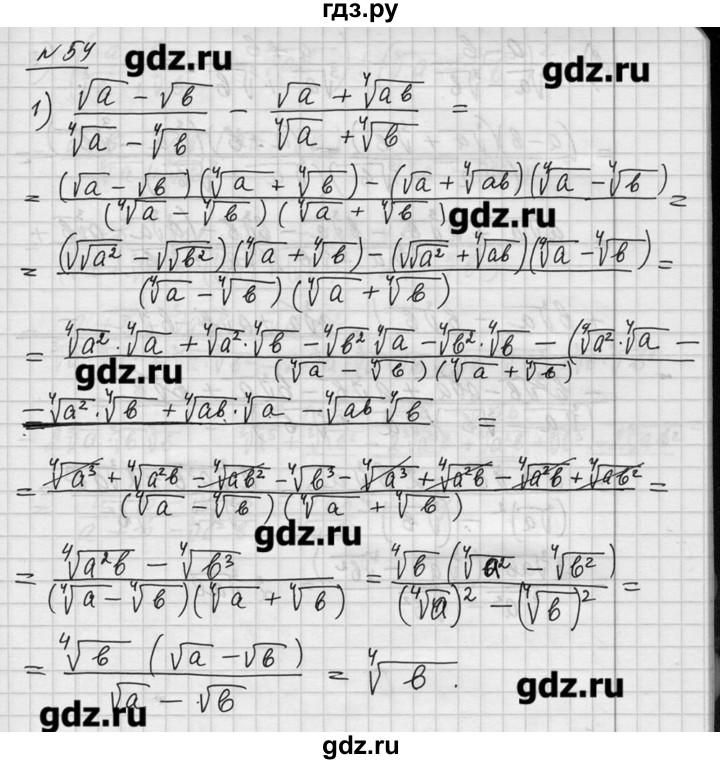 гдз.ру
№54
gdz.ru gdz.ru
1) (√a − √b)/(⁴√a − ⁴√b) − (√a + ⁴√ab)/(⁴√a + ⁴√b) =
= ((√a − √b)(⁴√a + ⁴√b) − (√a + ⁴√ab)(⁴√a − ⁴√b))/((⁴√a − ⁴√b)(⁴√a + ⁴√b)) =
gdz.ru
= ((√√a² − √√b²)(⁴√a + ⁴√b) − (√√a² + ⁴√ab)(⁴√a − ⁴√b))/((⁴√a − ⁴√b)(⁴√a + ⁴√b)) =
= (⁴√a² · ⁴√a + ⁴√a² · ⁴√b − ⁴√b² ⁴√a − ⁴√b² · ⁴√b − (⁴√a² · ⁴√a −)/((⁴√a − ⁴√b)(⁴√a + ⁴√b))
gdz.ru
− ⁴√a² · ⁴√b + ⁴√ab · ⁴√a − ⁴√ab ⁴√b =
= (⁴√a³ + ⁴√a²b − ⁴√ab² − ⁴√b³ − ⁴√a³ + ⁴√a²b − ⁴√a²b + ⁴√ab²)/((⁴√a − ⁴√b)(⁴√a + ⁴√b)) =
gdz.ru
= (⁴√a²b − ⁴√b³)/((⁴√a − ⁴√b)(⁴√a + ⁴√b)) = (⁴√b (⁴√a² − ⁴√b²))/((⁴√a)² − (⁴√b)²) =
= (⁴√b (√a − √b))/(√a − √b) = ⁴√b.
gdz.ru gdz.ru
gdz.ru